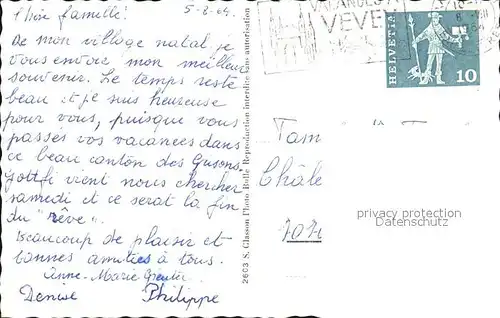 Chère famille! 5-8-64.
De mon village natal je
vous envoie mon meilleur
souvenir. Le temps reste
beau et je suis heureuse
pour vous, puisque vous
passés vos vacances dans
ce beau canton des Grisons.
Gottfi vient nous chercher
samedi et ce serait la fin
du "rêve".
Beaucoup de plaisir et
bonnes amitiés à tous.
Anne-Marie
Denise Philippe
2603 S. Glasson Photo Bulle Reproduction interdite sans autorisation
VACANCES
VEVEY
HELVETIA
10
Fam
Châle
privacy protection
Datenschutz